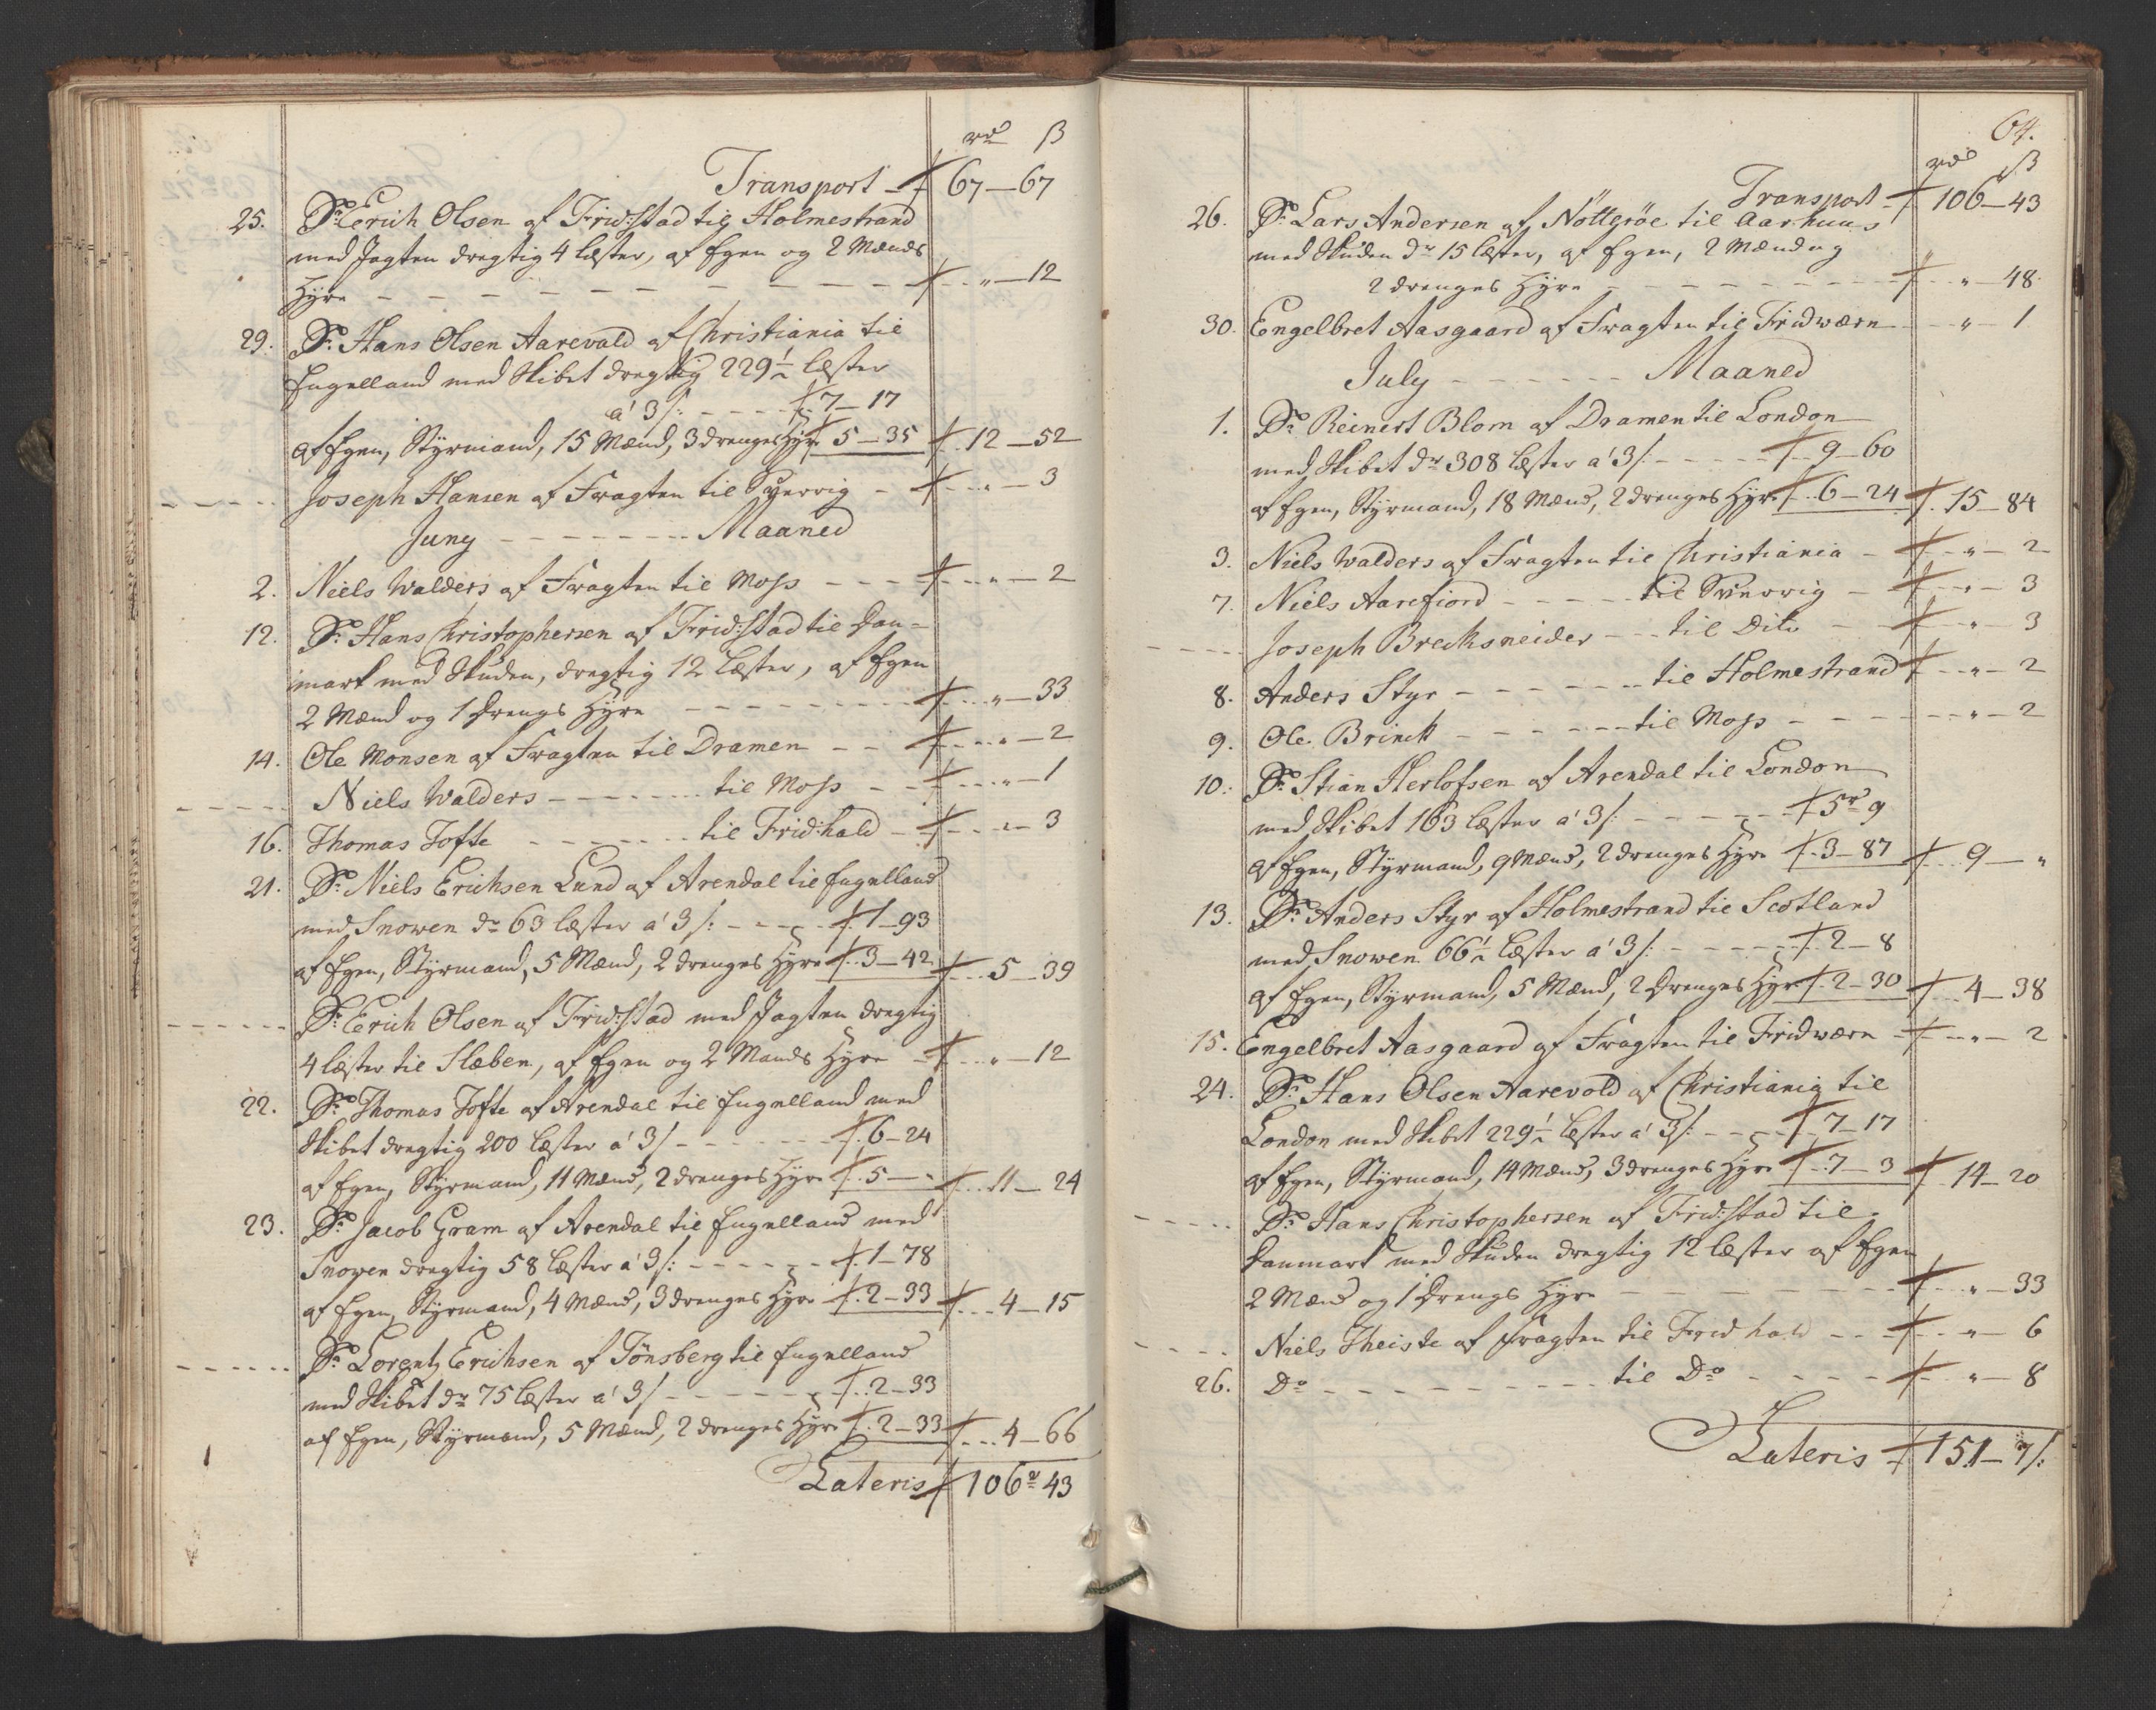 rd ß
Transport - 67 - 67
25. Sr Erich Olsen af Fridstad til Holmestrand
med Jagten dregtig 4 læster, af Egen og 2 Mænds
Hÿre - - - " - 12
29. Sr Hans Olsen Aarevald af Christiania til
Engelland med Skibet drægtig 229½ læster
a' 3 ß: - - - 7 - 17
af Egen, Stÿrmand, 15 Mænd, 3 drenges Hÿre 5 - 35 12 - 52
- - - Joseph Hansen af Fragten til Sverrig - " - 3
Junÿ - - - Maaned
2. Niels Walders af Fragten til Moss - - - " - 2
12. Sr Hans Christophersen af Fridstad til Dan-
mark med Skuden, drægtig 12 Læster, af Egen
2 Mænd og 1 Drengs Hÿre - - - " - 33
14. Ole Monsen af Fragten til Dramen - - " - 2
- - - Niels Walders - - - til Moss - - " - 1
16. Thomas Tofte - - - til Fridhald - " - 3
21. Sr Niels Erichsen Lund af Arendal til Engelland
med Snowen dr 63 læster a' 3 ß: - - - 1 - 93
af Egen, Stÿrmand, 5 Mænd, 2 drenges Hÿre 3 - 42 5 - 39
- - - Sr Erich Olsen af Fridstad med Jagten drægtig
4 læster til Slæben, af Egen og 2 Mands Hÿre - " - 12
22. Sr Thomas Tofte af Arendal til Engelland med
Skibet drægtig 200 læster a' 3 ß - - - 6 - 24
af Egen, Stÿrmand, 11 Mænd, 2 drenges Hÿre 5 - " 11 - 24
23. Sr Jacob Gram af Arendal til Engelland med
Snowen drægtig 58 læster a' 3 ß: - - - 1 - 78
af Egen, Stÿrmand, 4 Mænd, 3 drenges Hÿre 2 - 33 4 - 15
- - - Sr Lorentz Erichsen af Tönsberg til Engelland
med Skibet dr 75 læster a' 3 ß - - - 2 - 33
af Egen, Stÿrmand, 5 Mænd, 2 drenges Hÿre 2 - 33 4 - 66
Lateris 106 r 43
64.
rd ß
Transport - 106 - 43
26. Sr Lars Andersen af Nötteröe til Aarhuus
med Skuden dr 15 læster, af Egen, 2 Mænd og
2 drenges Hÿre - - - " - 48
30. Engelbret Aasgaard af Fragten til Fridwærn - " - 1
Julÿ - - - Maaned
1. Sr Reinert Blom af Dramen til London
med Skibet dr 308 læster a' 3 ß: - - - 9 - 60
af Egen, Stÿrmand, 18 Mænd, 2 drenges Hÿre 6 - 24 15 - 84
3. Niels Walders af Fragten til Christiania - " - 2
7. Niels Aarefiord - - - til Sverrig - " - 3
- - - Joseph Brecksneider - - til Dito - " - 3
8. Anders Styr - - - til Holmestrand " - 2
9. Ole Brinck - - - til Moss - - - " - 2
10. Sr Stian Herlofsen af Arendal til London
med Skibet 163 læster a' 3 ß: - - - 5 r 9
af Egen, Stÿrmand, 9 Mænd, 2 drenges Hÿre 3 - 87 9 - "
13. Sr Anders Styr af Holmestrand til Scotland
med Snowen 66½ læster a' 3 ß: - - - 2 - 8
af Egen, Stÿrmand, 5 Mænd, 2 Drenges Hÿre 2 - 30 4 - 38
15. Engelbret Aasgaard af Fragten til Fridwærn - " - 2
24. Sr Hans Olsen Aarevold af Christiania til
London med Skibet 229½ læster a' 3 ß: - - - 7 - 17
af Egen, Stÿrmand, 14 Mænd, 3 drenges Hÿre 7 - 3 14 - 20
- - - Sr Hans Christophersen af Fridstad til
Danmark med Skuden drægtig 12 læster af Egen
2 Mænd og 1 Drengs Hÿre - - - " - 33
- - - Niels Theiste af Fragten til Fridhald - - " - 6
26. Do - - - til Do - - - " - 8
Lateris 151 - 7 ß: